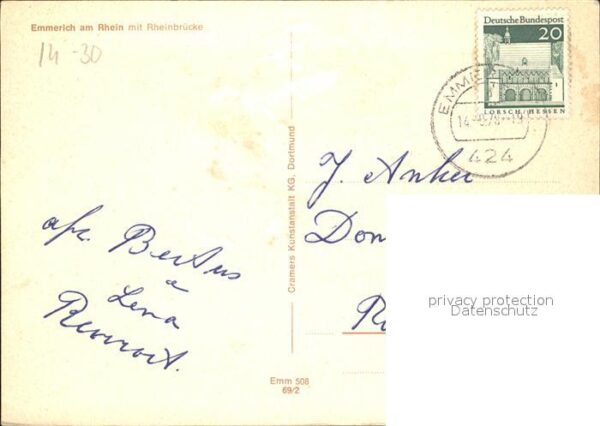 Emmerich am Rhein mit Rheinbrücke
14-30
Deutsche Bundespost
20
LORSCH/HESSEN
424
Cramers Kunstanstalt KG. Dortmund
J. Anker
afz. Bertus
a
Lena
privacy protection
Datenschutz
Emm 508
69/2